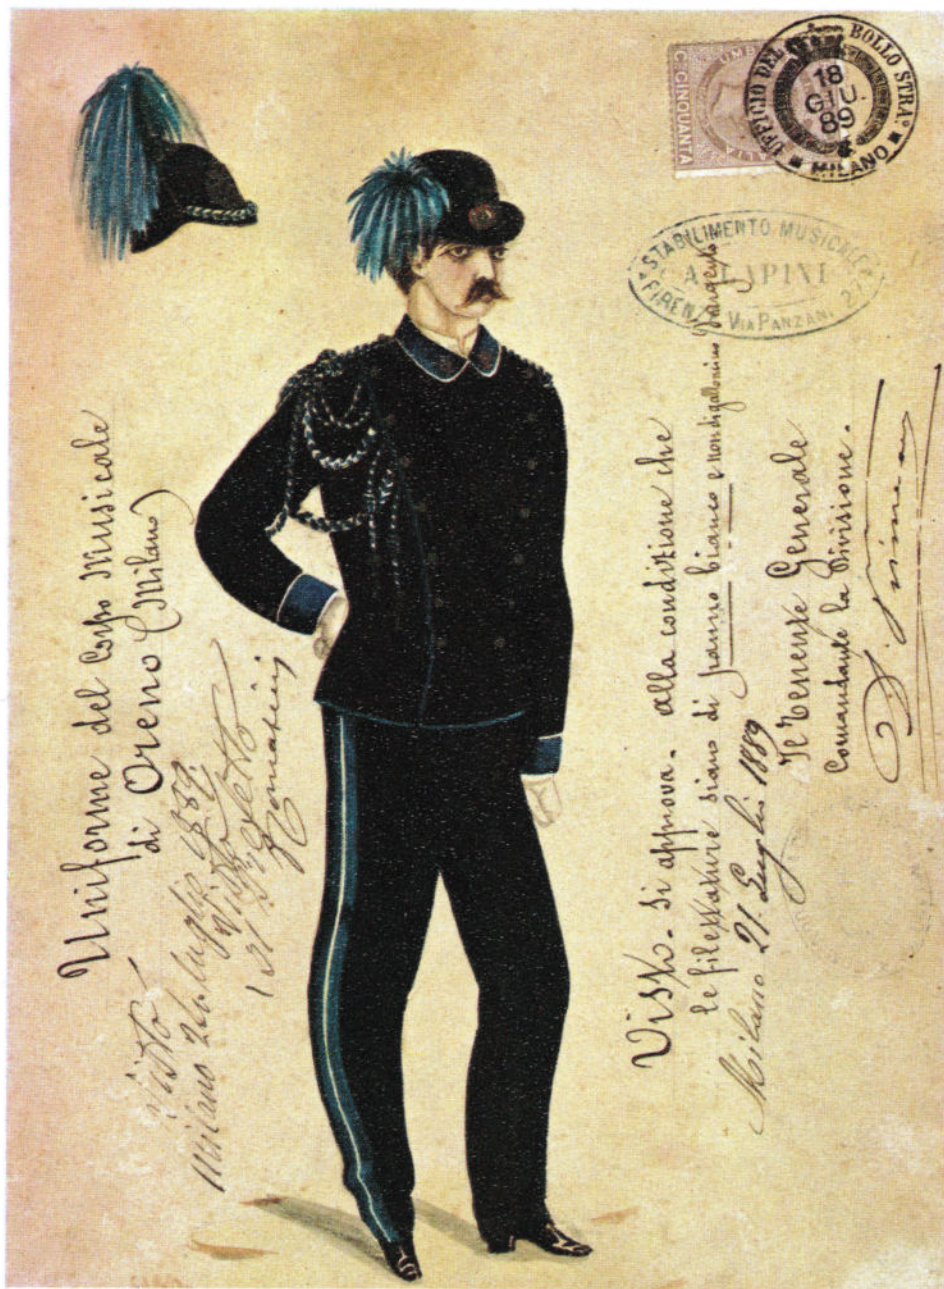 UFFICIO DEL BOLLO STRAº
18
GIU
89
MILANO
C. CINQUANTA
STABILIMENTO MUSICALE
A. LAPINI
FIRENZE VIA PANZANI 27
Uniforme del Corpo Musicale
di Oreno (Milano)
Visto
Milano 24 luglio 1889.
Il Prefetto
Visto. Si approva. alla condizione che
le filettature siano di panno bianco e non di galloncino d'argento
Milano 21 Luglio 1889
Il Tenente Generale
Comandante la Divisione.